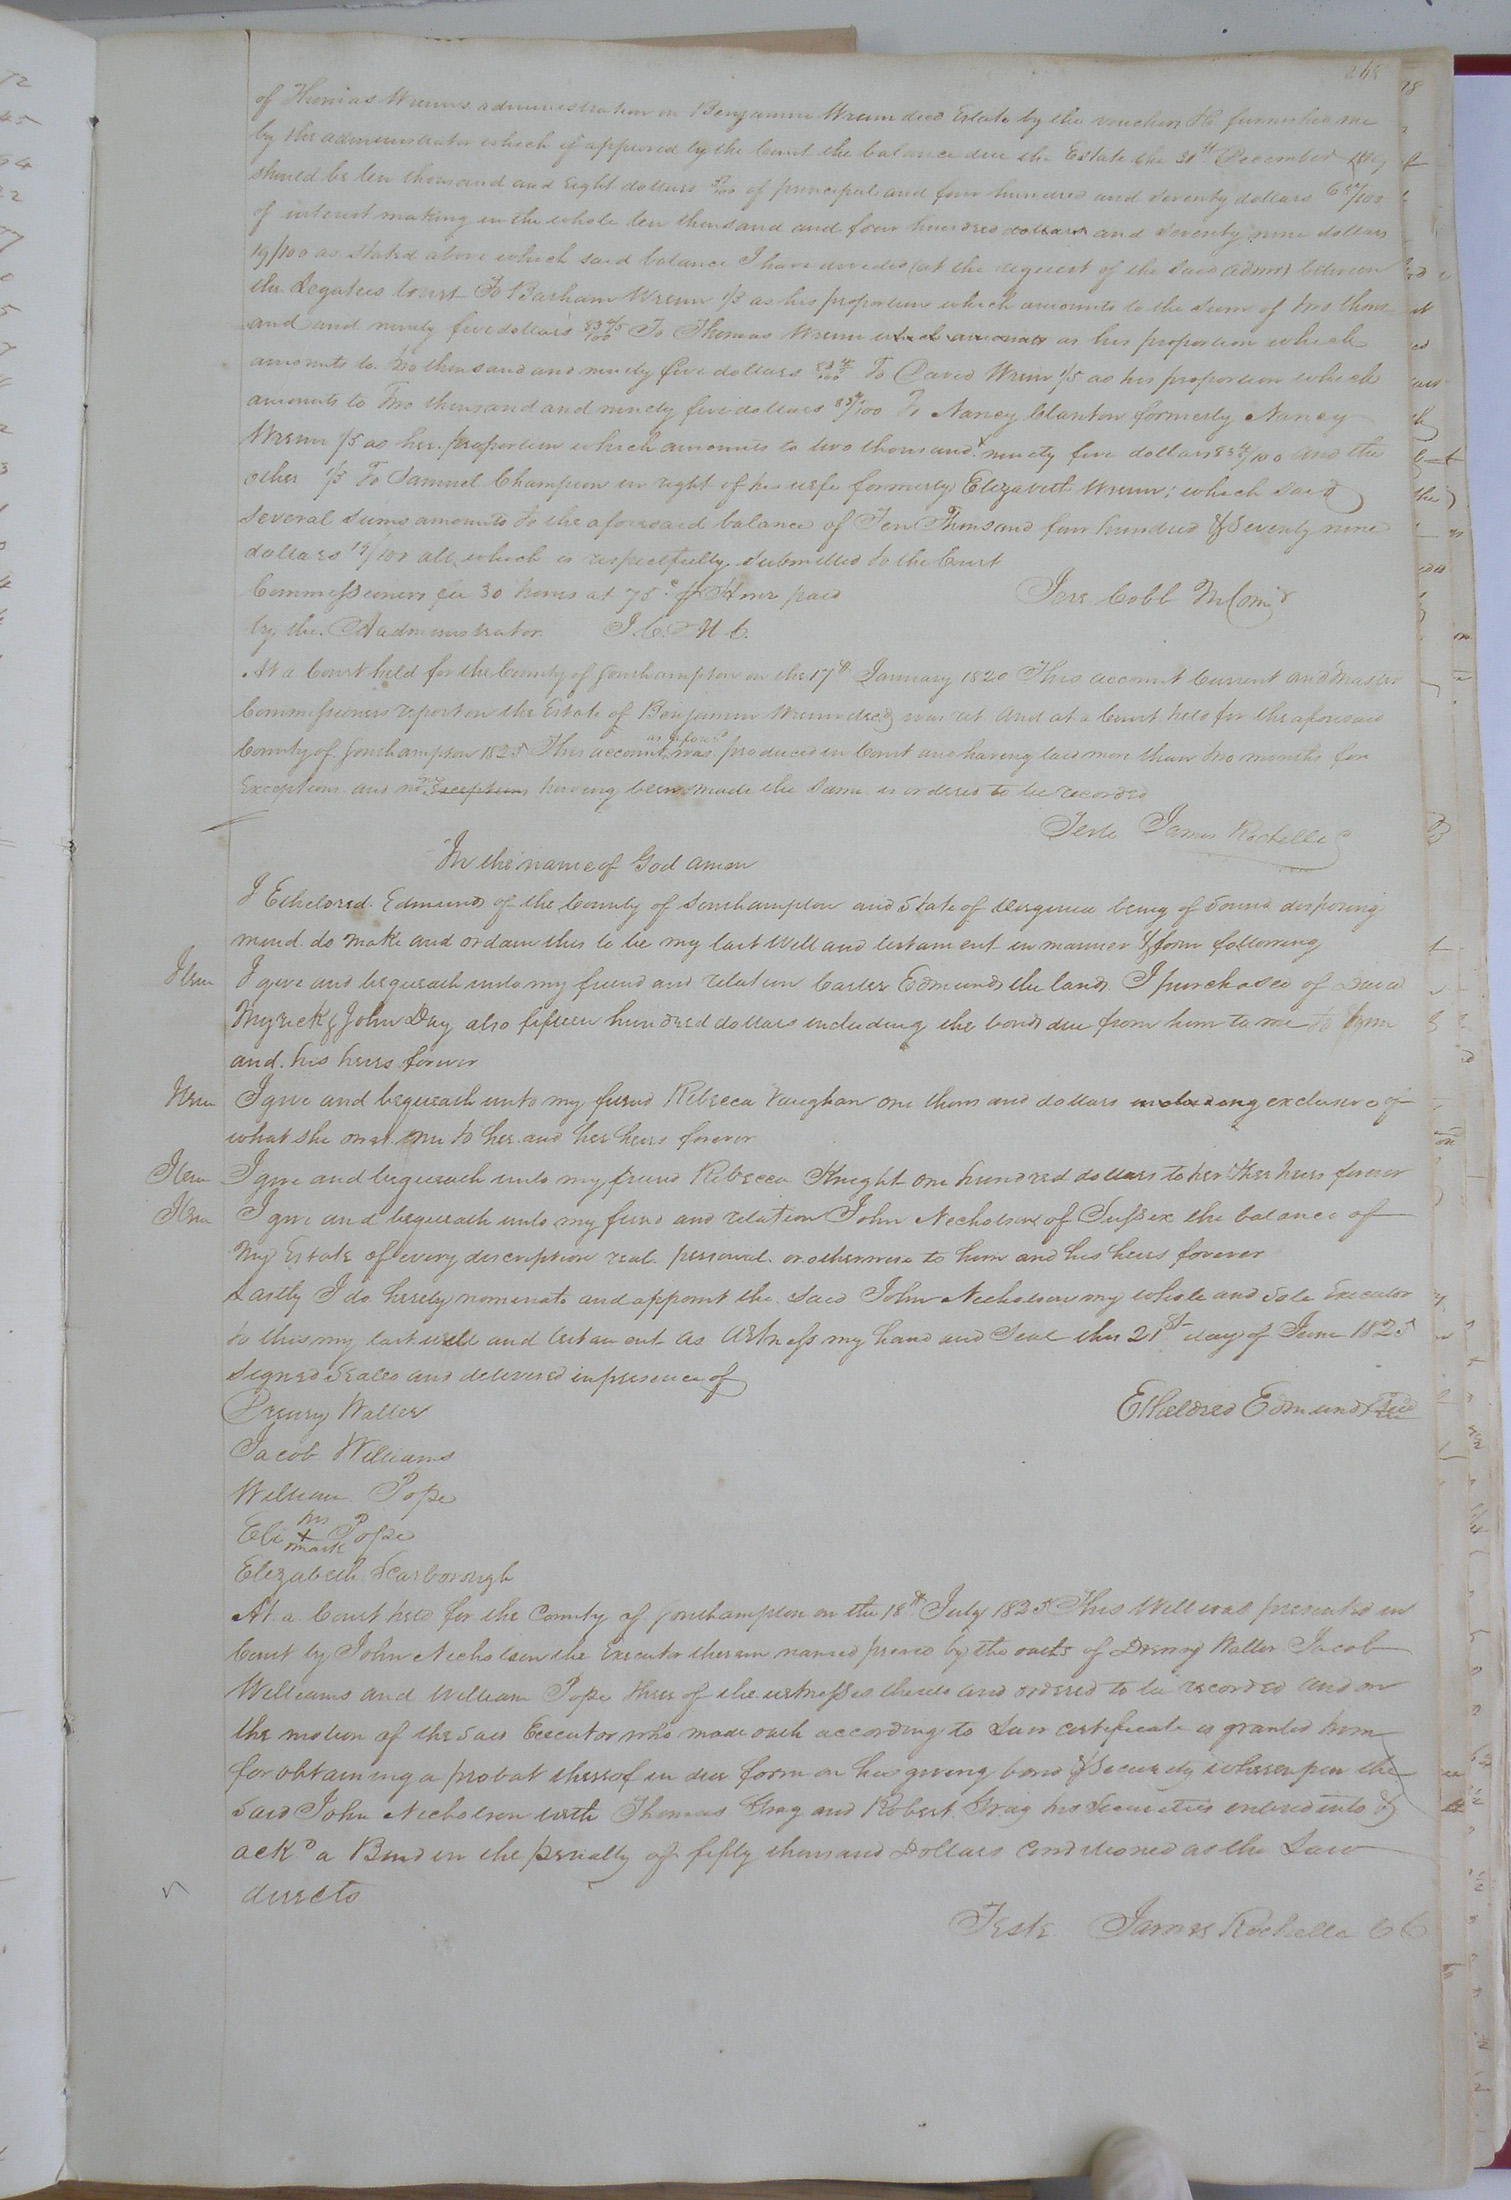 of Thomas Wrenns administration on Benjamin Wrenn decd Estate by the vouchers &c furnished me
by the administrator which if approved by the Court the balance due the Estate the 31st December
should be ten thousand and Eight dollars of principal and four hundred and seventy dollars
of interest making in the whole ten thousand and four hundred dollars and seventy nine dollars
19/100 as stated above which said balance I have devided (at the request of the said admr) between
the Legatees Court To Barham Wrenn 1/5 as his proportion which amounts to the sum of two thous
and and ninety five dollars 83 4/5/100 To Thomas Wrenn as his proportion which
amounts to two thousand and ninety five dollars To David Wrenn 1/5 as his proportion which
amounts to Two thousand and ninety five dollars To Nancy Clanton formerly Nancy
Wrenn 1/5 as her proportion which amounts to two thousand ninety five dollars and the
other 1/5 To Samuel Champion in right of his wife formerly Elizabeth Wrenn; which said
several sums amounts to the aforesaid balance of Ten Thousand four hundred & seventy nine
dollars 19/100 all which is respectfully submitted to the Court
Commissioners fee 30 hours at 75c pr Hour paid Jere Cobb M Comr
by the Aadministrator J. C. M C.
At a Court held for the County of Southampton on the 17th January 1820 This account Current and Master
Commissioners report on the Estate of Benjamin Wrenn decd was ret And at a Court held for the aforesaid
County of Southampton 1825 This account was produced in Court and having laid more than two months for
Exceptions and no Exceptions having been made the same is ordered to be recorded
Teste James Rochelle
In the name of God amen
I Etheldred Edmunds of the County of Southampton and State of Virginia being of sound disposing
mind do make and ordain this to be my last will and testament in manner & form following
Item I give and bequeath unto my friend and relation Carter Edmunds the lands I purchased of David
Myrick & John Day also fifteen hundred dollars including the bonds due from him to me to him
and his heirs forever
Item I give and bequeath unto my friend Rebecca Vaughan one thousand dollars including exclusive of
what she owes me to her and her heirs forever
Item I give and bequeath unto my friend Rebecca Knight one hundred dollars to her & her heirs forever
Item I give and bequeath unto my friend and relation John Nicholson of Sussex the balance of
my Estate of every description real personal or otherwise to him and his heirs forever
Lastly I do hereby nominate and appoint the said John Nicholson my whole and sole Executor
to this my last will and testament as witness my hand and Seal this 21st day of June 1825
Signed Sealed and delivered in presence of
Drewry Waller Etheldred Edmunds Seal
Jacob Williams
William Pope
Eli his + mark Pope
Elizabeth Scarborough
At a Court held for the County of Southampton on the 18th July 1825 This Will was presented in
Court by John Nicholson the Executor therein named proved by the oaths of Drewry Waller Jacob
Williams and William Pope three of the witnesses thereto and ordered to be recorded and on
the motion of the said Executor who made oath according to Law certificate is granted him
for obtaining a probat thereof in due form on his giving bond & security whereupon the
said John Nicholson with Thomas Gray and Robert Gray his Securities entered into &
ackd a Bond in the penalty of fifty thousand Dollars conditioned as the Law
directs
Teste James Rochelle CC